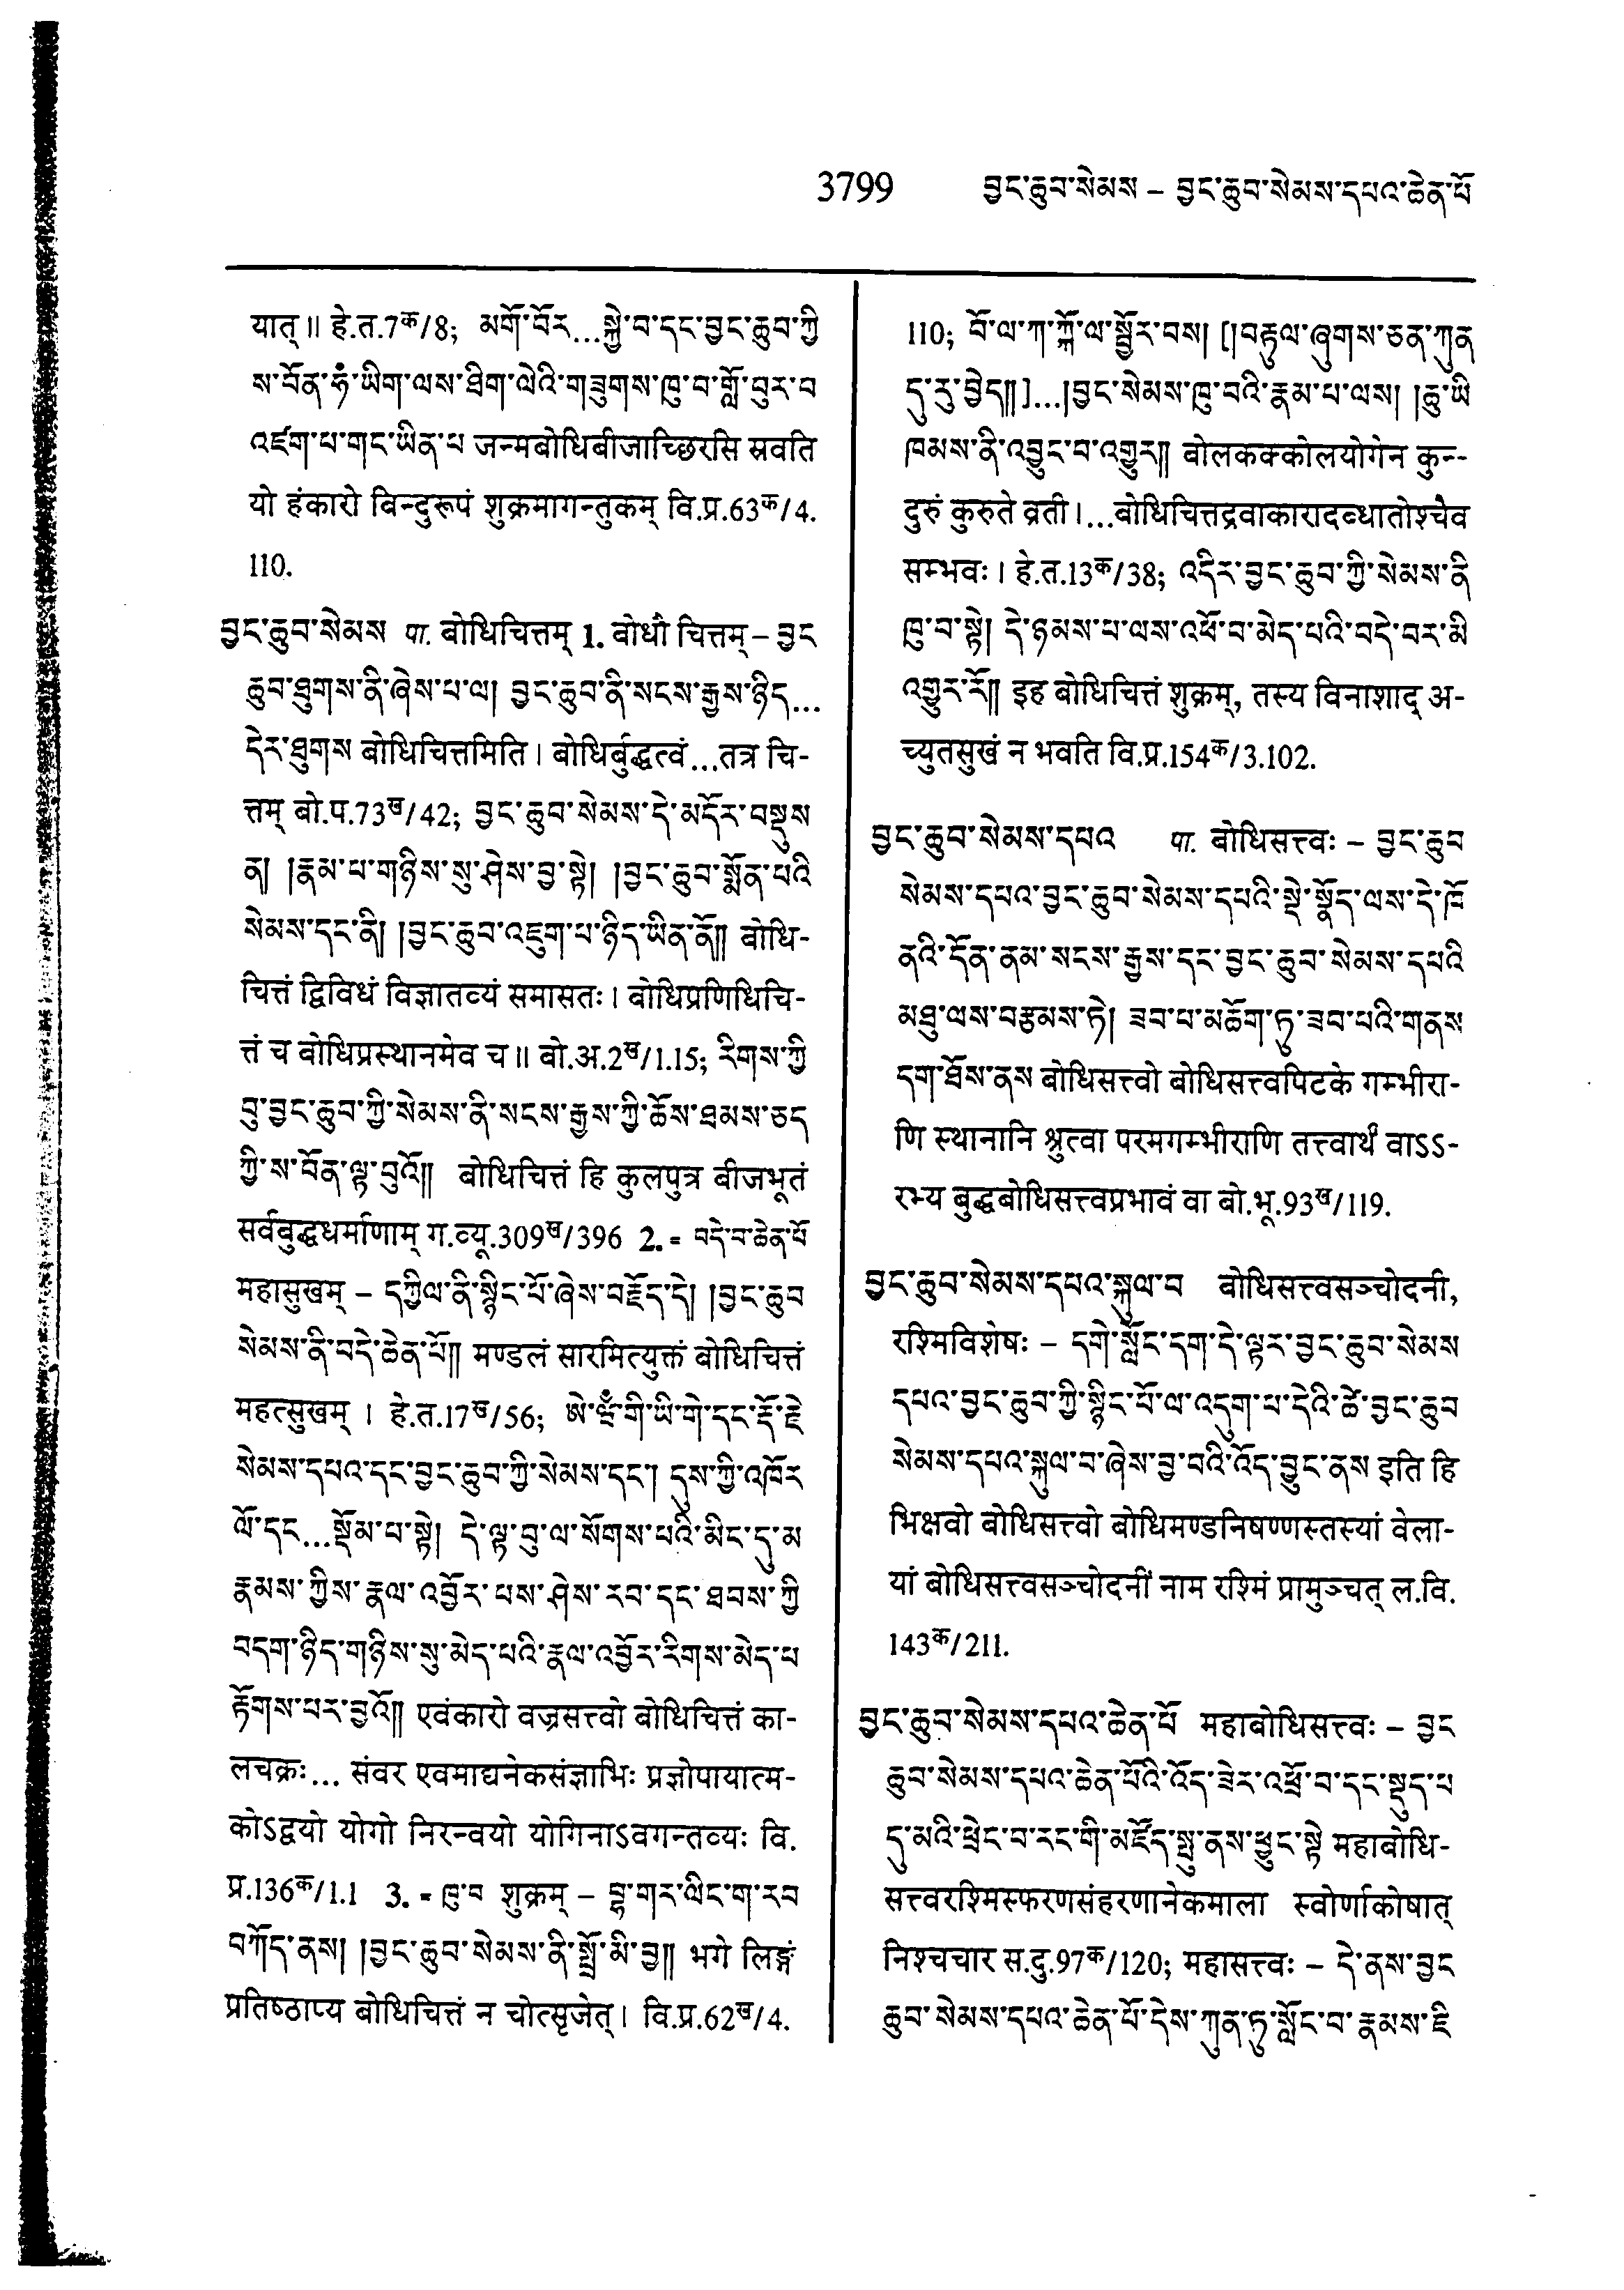 3799 བྱང་ཆུབ་སེམས – བྱང་ཆུབ་སེམས་དཔའ་ཆེན་པོ
यात्॥ हे.त.7क/8; མགོ་བོར...སྐྱེ་བ་དང་བྱང་ཆུབ་ཀྱི
ས་བོན་ཧཾ་ཡིག་ལས་ཐིག་ལེའི་གཟུགས་ཁུ་བ་གློ་བུར་བ
འཛག་པ་གང་ཡིན་པ जन्मबोधिबीजाच्छिरसि स्रवति
यो हंकारो विन्दुरूपं शुक्रमागन्तुकम् वि.प्र.63क/4.
110.
བྱང་ཆུབ་སེམས पा. बोधिचित्तम् 1. बोधौ चित्तम् – བྱང
ཆུབ་ཐུགས་ནི་ཞེས་པ་ལ། བྱང་ཆུབ་ནི་སངས་རྒྱས་ཉིད...
དེར་ཐུགས बोधिचित्तमिति। बोधिर्बुद्धत्वं...तत्र चि-
त्तम् बो.प.73ख/42; བྱང་ཆུབ་སེམས་དེ་མདོར་བསྡུས
ན། །རྣམ་པ་གཉིས་སུ་ཤེས་བྱ་སྟེ། །བྱང་ཆུབ་སྨོན་པའི
སེམས་དང་ནི། །བྱང་ཆུབ་འཇུག་པ་ཉིད་ཡིན་ནོ༎ बोधि-
चित्तं द्विविधं विज्ञातव्यं समासतः। बोधिप्रणिधिचि-
त्तं च बोधिप्रस्थानमेव च॥ बो.अ.2ख/1.15; རིགས་ཀྱི
བུ་བྱང་ཆུབ་ཀྱི་སེམས་ནི་སངས་རྒྱས་ཀྱི་ཆོས་ཐམས་ཅད
ཀྱི་ས་བོན་ལྟ་བུའོ༎ बोधिचित्तं हि कुलपुत्र बीजभूतं
सर्वबुद्धधर्माणाम् ग.व्यू.309ख/396 2. = བདེ་བ་ཆེན་པོ
महासुखम् – དཀྱིལ་ནི་སྙིང་པོ་ཞེས་བརྗོད་དེ། །བྱང་ཆུབ
སེམས་ནི་བདེ་ཆེན་པོ༎ मण्डलं सारमित्युक्तं बोधिचित्तं
महत्सुखम्। हे.त.17ख/56; ཨེ་ཝཾ་གི་ཡི་གེ་དང་རྡོ་རྗེ
སེམས་དཔའ་དང་བྱང་ཆུབ་ཀྱི་སེམས་དང༌། དུས་ཀྱི་འཁོར
ལོ་དང...སྡོམ་པ་སྟེ། དེ་ལྟ་བུ་ལ་སོགས་པའི་མིང་དུ་མ
རྣམས་ཀྱིས་རྣལ་འབྱོར་པས་ཤེས་རབ་དང་ཐབས་ཀྱི
བདག་ཉིད་གཉིས་སུ་མེད་པའི་རྣལ་འབྱོར་རིགས་མེད་པ
རྟོགས་པར་བྱའོ༎ एवंकारो वज्रसत्त्वो बोधिचित्तं का-
लचक्रः... संवर एवमाद्यनेकसंज्ञाभिः प्रज्ञोपायात्म-
कोऽद्वयो योगो निरन्वयो योगिनाऽवगन्तव्यः वि.
प्र.136क/1.1 3. = ཁུ་བ शुक्रम् – བྷ་གར་ལིང་ག་རབ
བཀོད་ནས། །བྱང་ཆུབ་སེམས་ནི་སྤྲོ་མི་བྱ༎ भगे लिङ्गं
प्रतिष्ठाप्य बोधिचित्तं न चोत्सृजेत्। वि.प्र.62ख/4.
110; བོ་ལ་ཀ་ཀྐོ་ལ་སྦྱོར་བས། [།བརྟུལ་ཞུགས་ཅན་ཀུན
དུ་རུ་བྱེད༎]...།བྱང་སེམས་ཁུ་བའི་རྣམ་པ་ལས། །ཆུ་ཡི
ཁམས་ནི་འབྱུང་བ་འགྱུར༎ बोलकक्कोलयोगेन कुन्-
दुरुं कुरुते व्रती।...बोधिचित्तद्रवाकारादब्धातोश्चैव
सम्भवः। हे.त.13क/38; འདིར་བྱང་ཆུབ་ཀྱི་སེམས་ནི
ཁུ་བ་སྟེ། དེ་ཉམས་པ་ལས་འཕོ་བ་མེད་པའི་བདེ་བར་མི
འགྱུར་རོ༎ इह बोधिचित्तं शुक्रम्, तस्य विनाशाद् अ-
च्युतसुखं न भवति वि.प्र.154क/3.102.
བྱང་ཆུབ་སེམས་དཔའ पा. बोधिसत्त्वः – བྱང་ཆུབ
སེམས་དཔའ་བྱང་ཆུབ་སེམས་དཔའི་སྡེ་སྣོད་ལས་དེ་ཁོ
ནའི་དོན་ནམ་སངས་རྒྱས་དང་བྱང་ཆུབ་སེམས་དཔའི
མཐུ་ལས་བརྩམས་ཏེ། ཟབ་པ་མཆོག་ཏུ་ཟབ་པའི་གནས
དག་ཐོས་ནས बोधिसत्त्वो बोधिसत्त्वपिटके गम्भीरा-
णि स्थानानि श्रुत्वा परमगम्भीराणि तत्त्वार्थं वाऽऽ-
रभ्य बुद्धबोधिसत्त्वप्रभावं वा बो.भू.93ख/119.
བྱང་ཆུབ་སེམས་དཔའ་སྐུལ་བ बोधिसत्त्वसञ्चोदनी,
रश्मिविशेषः – དགེ་སློང་དག་དེ་ལྟར་བྱང་ཆུབ་སེམས
དཔའ་བྱང་ཆུབ་ཀྱི་སྙིང་པོ་ལ་འདུག་པ་དེའི་ཚེ་བྱང་ཆུབ
སེམས་དཔའ་སྐུལ་བ་ཞེས་བྱ་བའི་འོད་བྱུང་ནས इति हि
भिक्षवो बोधिसत्त्वो बोधिमण्डनिषण्णस्तस्यां वेला-
यां बोधिसत्त्वसञ्चोदनीं नाम रश्मिं प्रामुञ्चत् ल.वि.
143क/211.
བྱང་ཆུབ་སེམས་དཔའ་ཆེན་པོ महाबोधिसत्त्वः – བྱང
ཆུབ་སེམས་དཔའ་ཆེན་པོའི་འོད་ཟེར་འཕྲོ་བ་དང་སྡུད་པ
དུ་མའི་ཕྲེང་བ་རང་གི་མཛོད་སྤུ་ནས་ཕྱུང་སྟེ महाबोधि-
सत्त्वरश्मिस्फरणसंहरणानेकमाला स्वोर्णाकोषात्
निश्चचार स.दु.97क/120; महासत्त्वः – དེ་ནས་བྱང
ཆུབ་སེམས་དཔའ་ཆེན་པོ་དེས་ཀུན་ཏུ་སློང་བ་རྣམས་ཇི